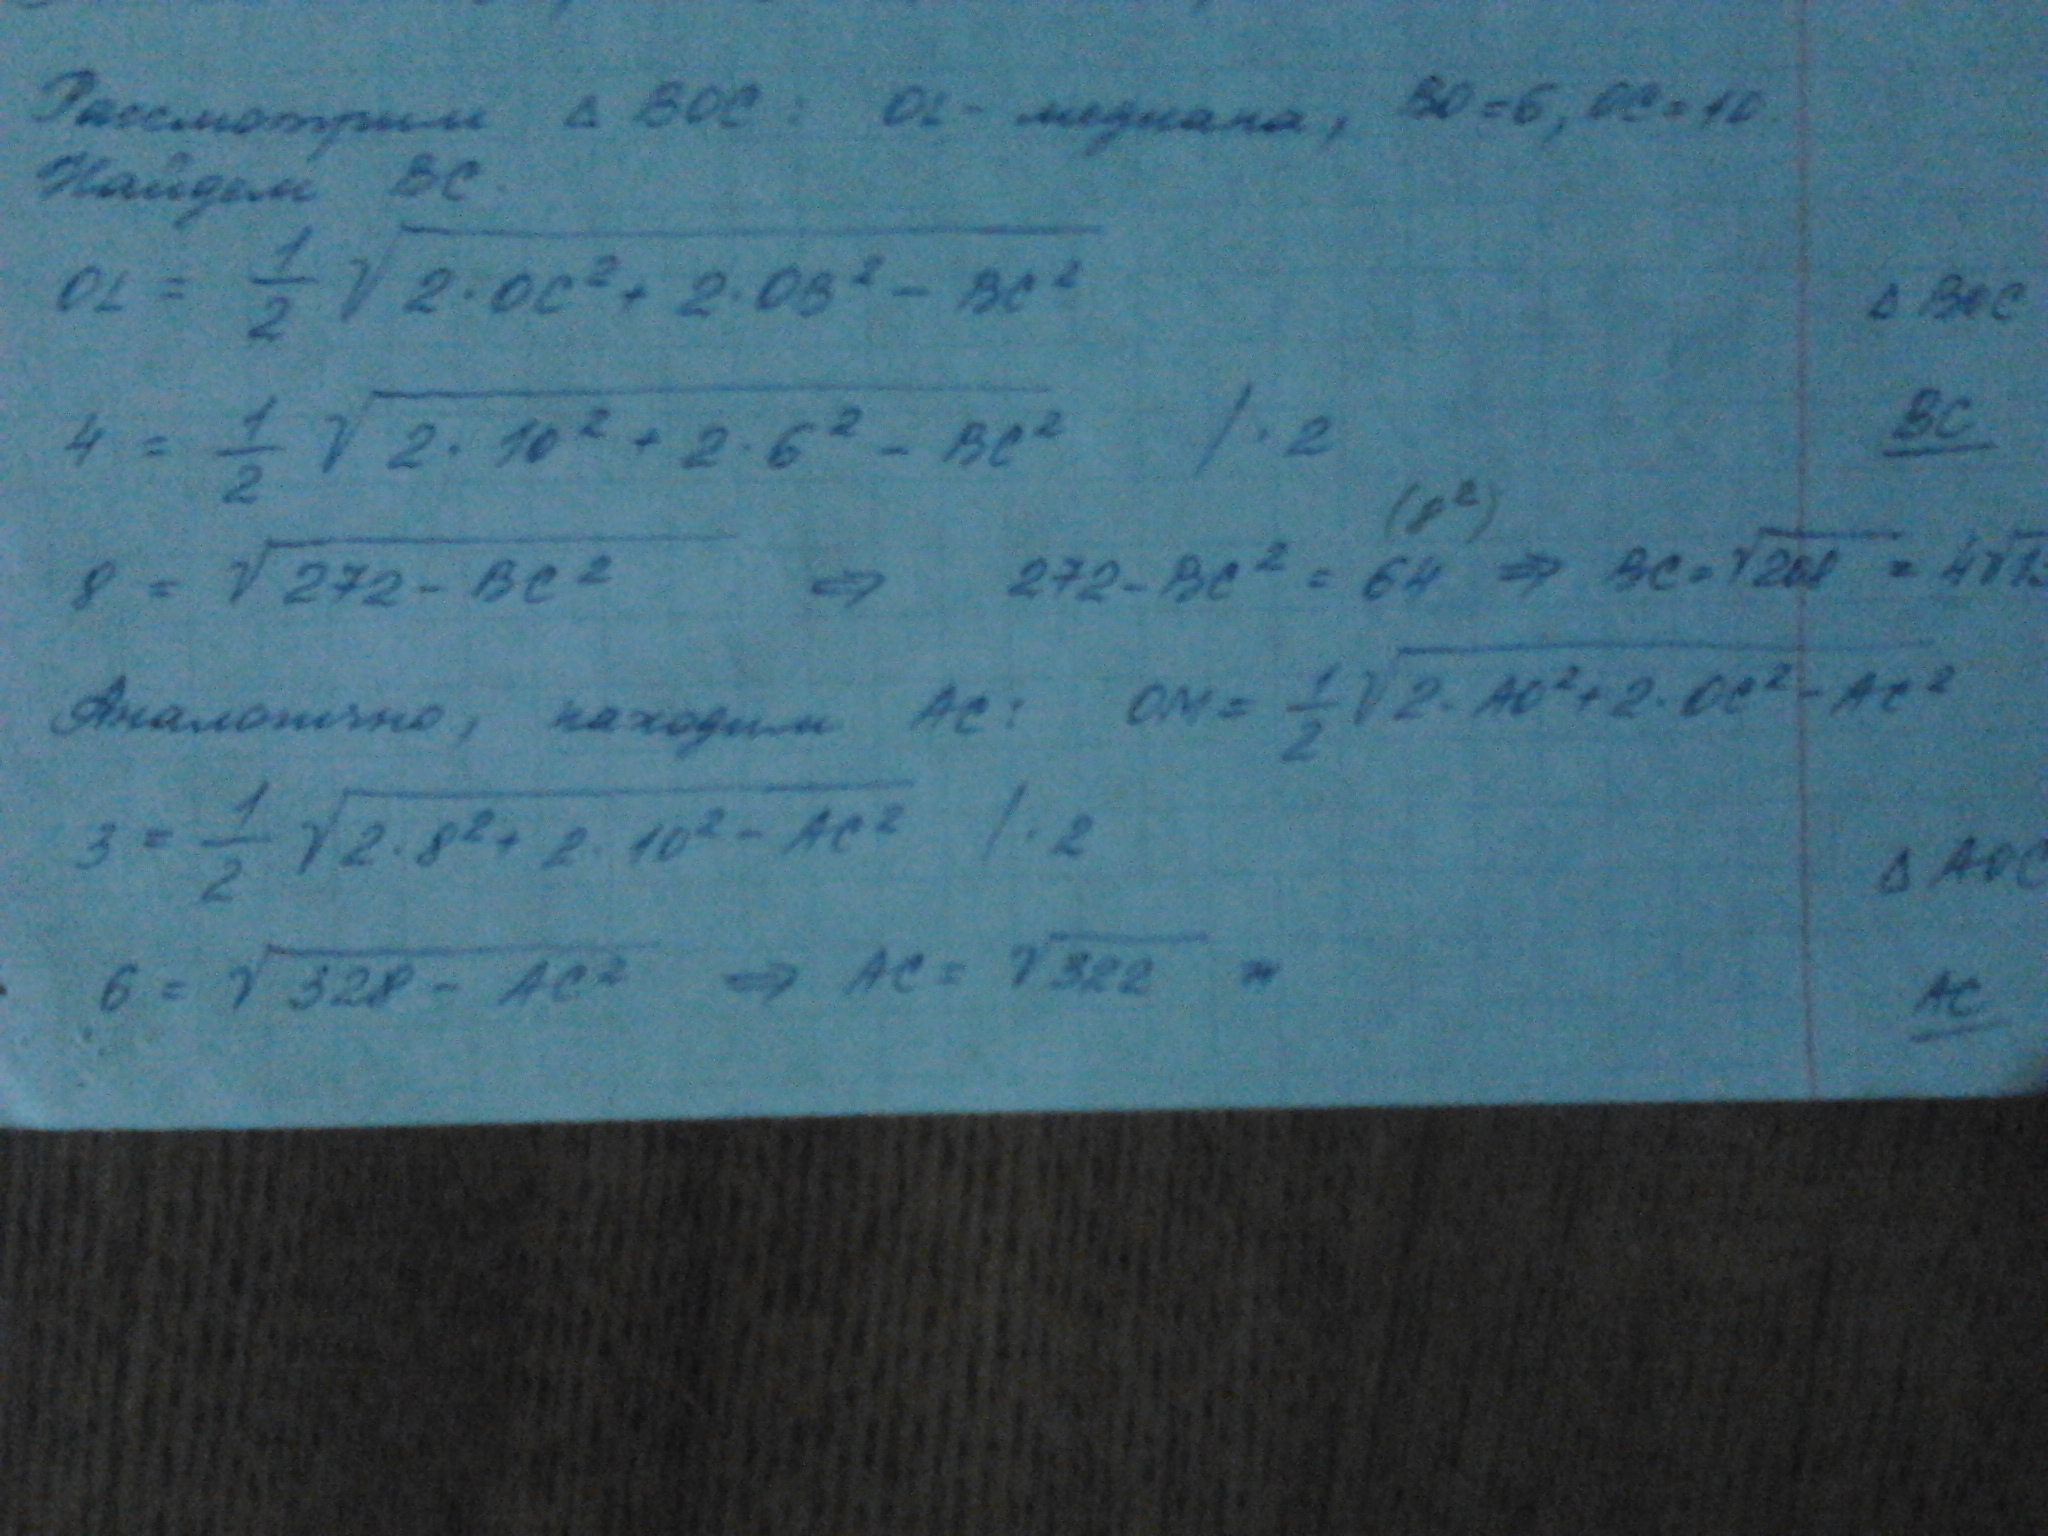 Рассмотрим △ BOC: OL - медиана, BO = 6, OC = 10.
Найдем BC.
OL = 1/2 √(2·OC² + 2·OB² - BC²)
△ BOC
4 = 1/2 √(2·10² + 2·6² - BC²) /·2
BC
(8²)
8 = √(272 - BC²) ⇒ 272 - BC² = 64 ⇒ BC = √208 = 4√13
Аналогично, находим AC: OM = 1/2 √(2·AO² + 2·OC² - AC²)
3 = 1/2 √(2·8² + 2·10² - AC²) /·2
△ AOC
6 = √(328 - AC²) ⇒ AC = √322
AC